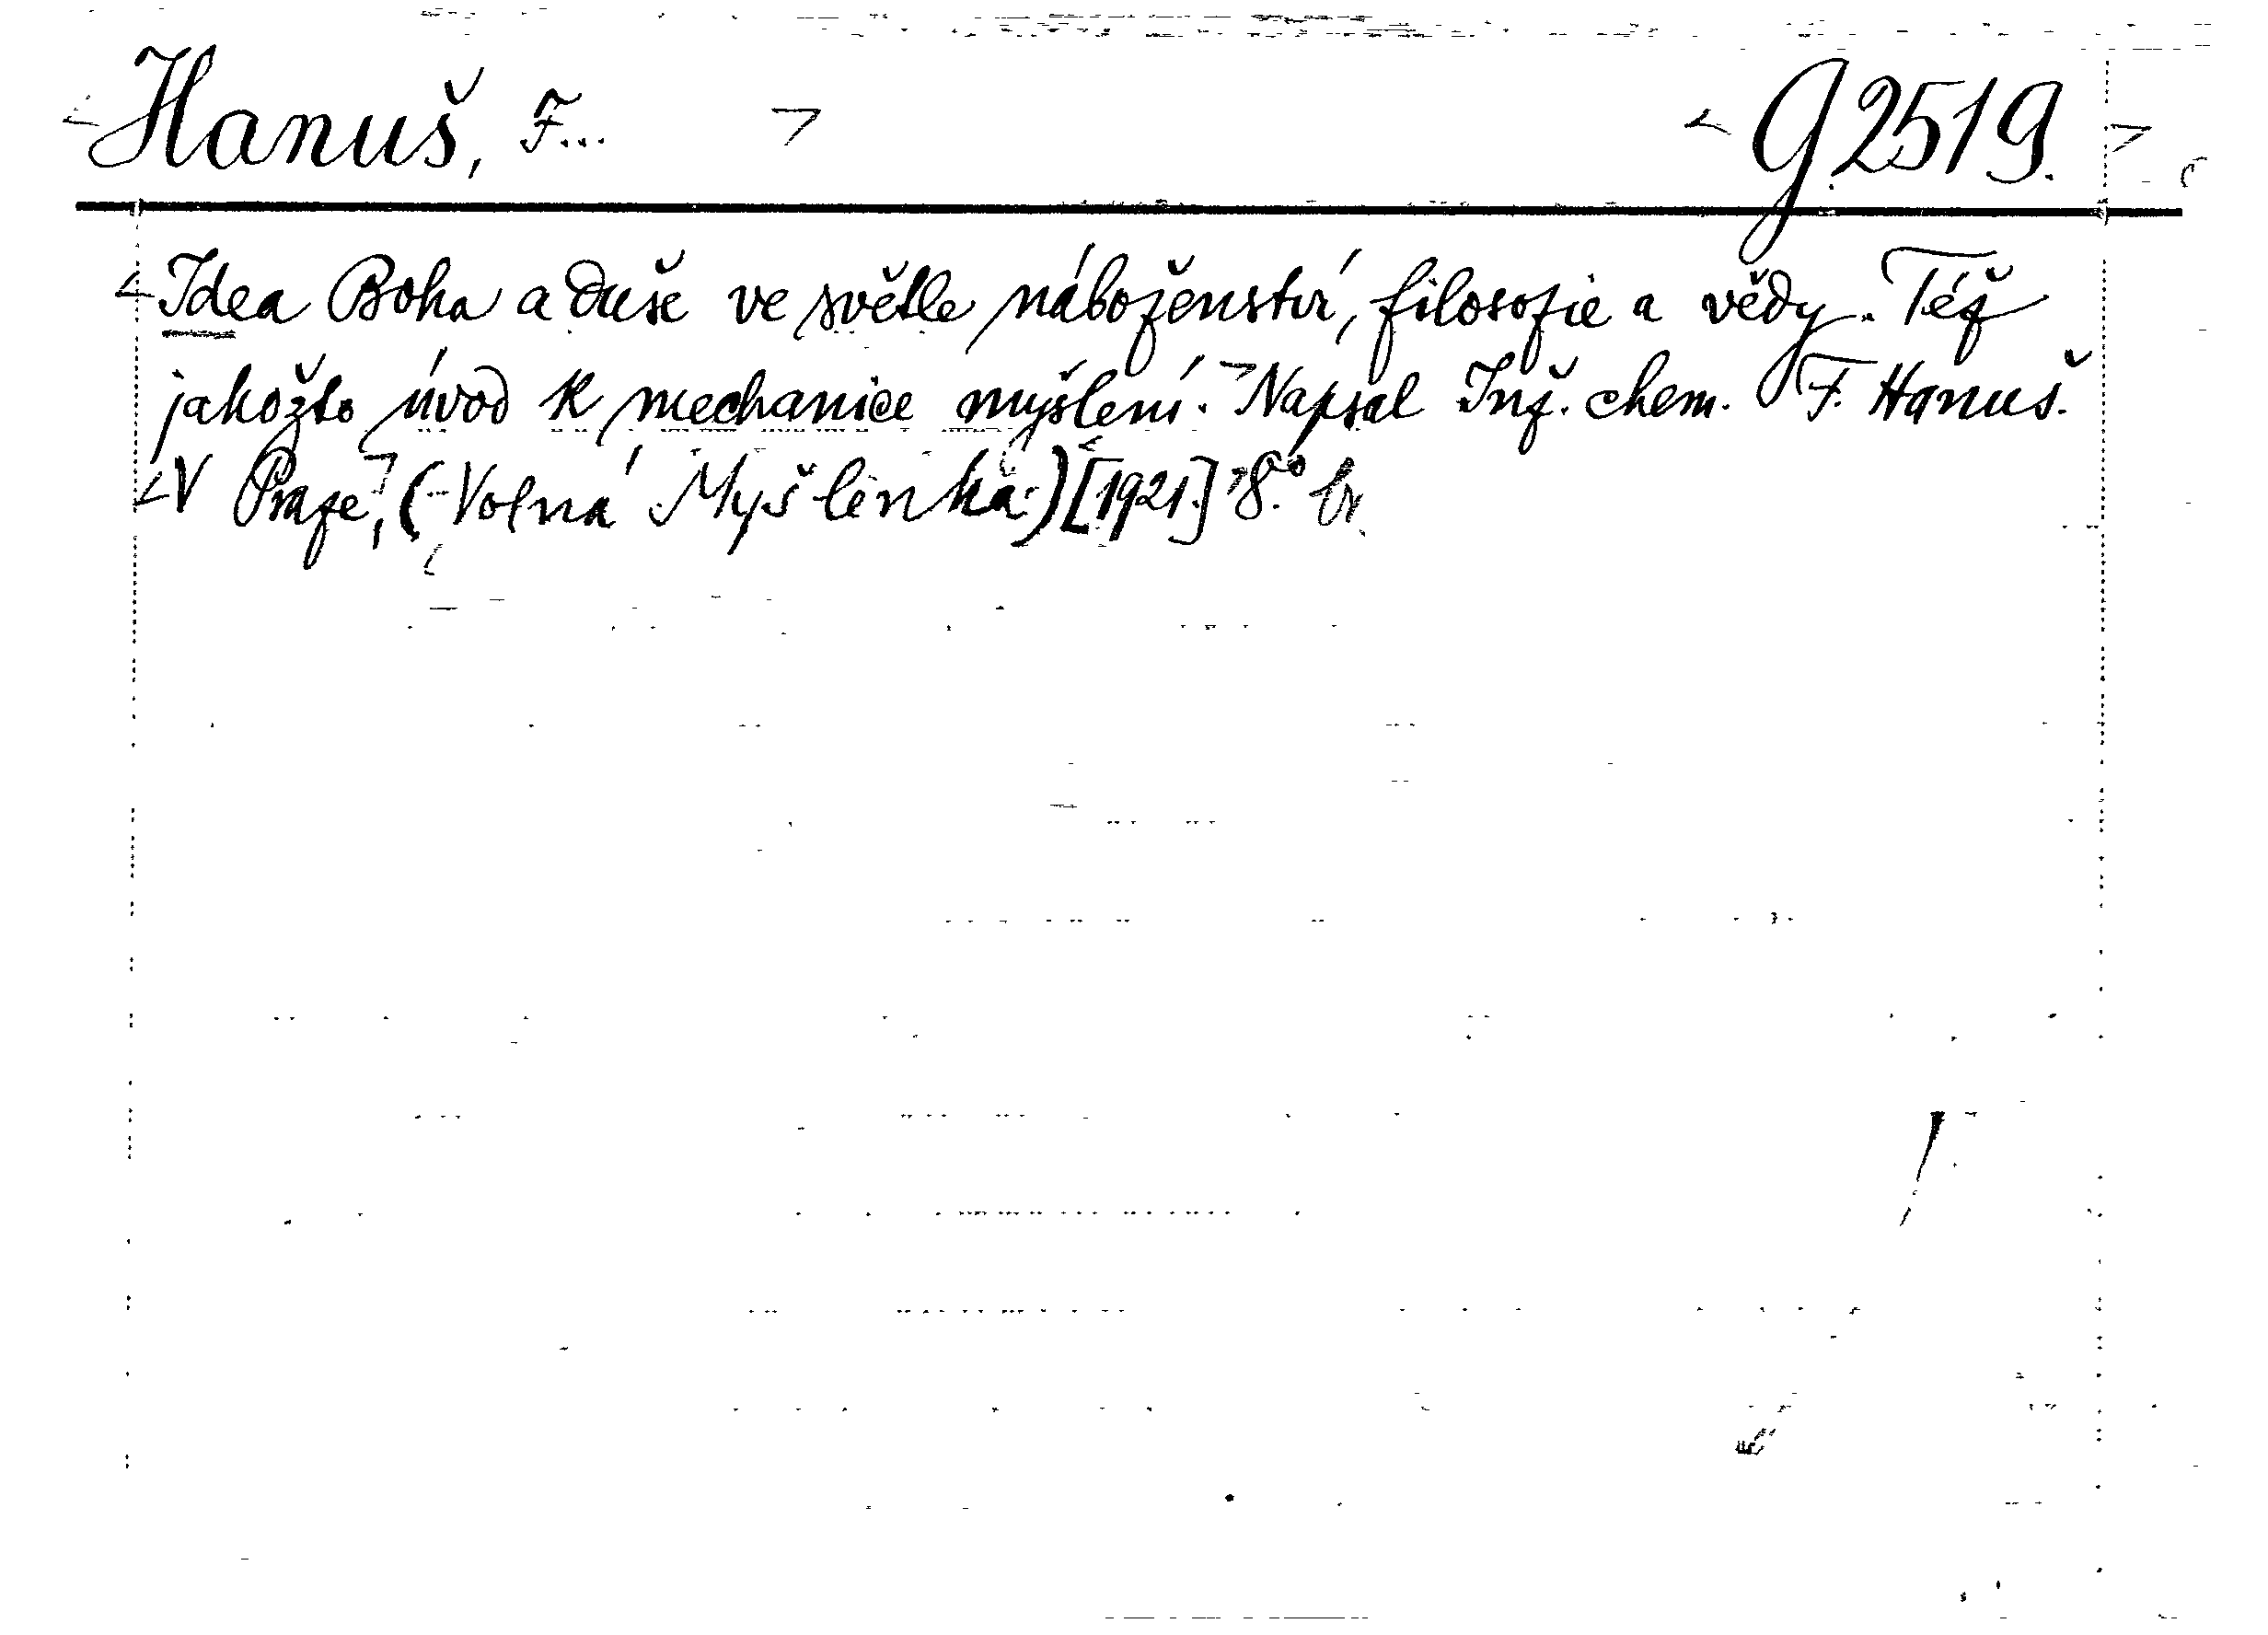 Hanuš, F... G 2519.
Idea Boha a duše ve světle náboženství, filosofie a vědy. Též
jakožto úvod k mechanice myšlení. Napsal Inž. chem. F. Hanuš.
V Praze, (Volná Myšlenka.) [1921.] 8.° br.